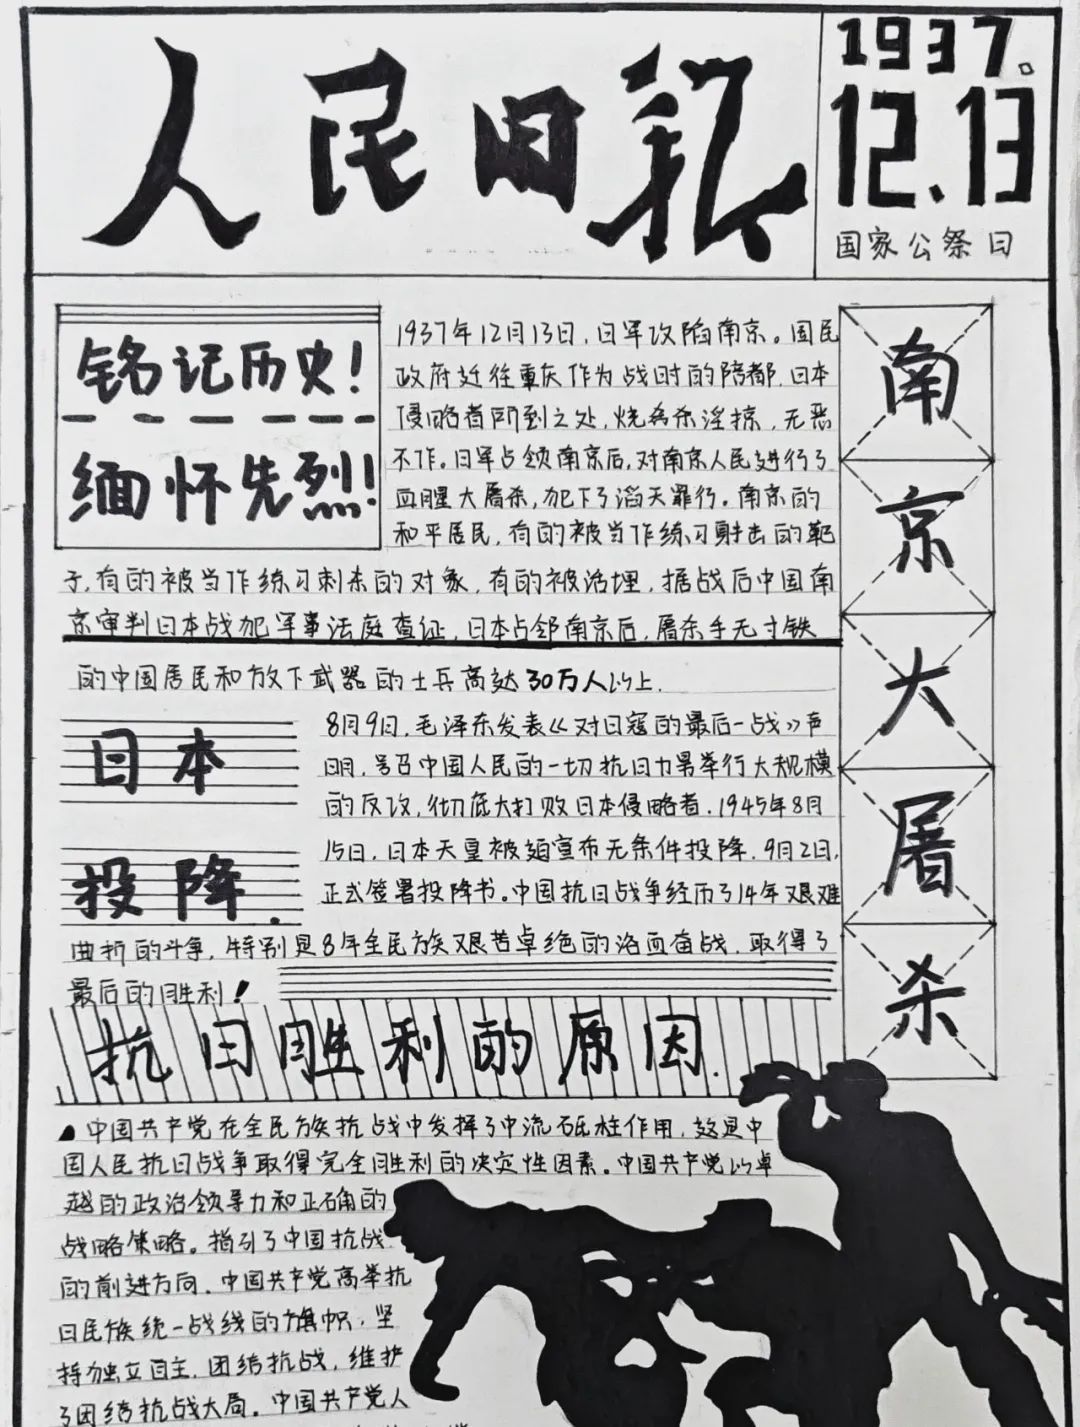 人民日报
1937.
12.13
国家公祭日
铭记历史!
缅怀先烈!
1937年12月13日,日军攻陷南京。国民
政府迁往重庆作为战时的陪都,日本
侵略者所到之处,烧杀淫掠,无恶
不作。日军占领南京后,对南京人民进行了
血腥大屠杀,犯下了滔天罪行。南京的
和平居民,有的被当作练习射击的靶
子,有的被当作练习刺杀的对象,有的被活埋,据战后中国南
京审判日本战犯军事法庭查证,日本占领南京后,屠杀手无寸铁
的中国居民和放下武器的士兵高达30万人以上.
南京大屠杀
日本
投降.
8月9日,毛泽东发表《对日寇的最后一战》声
明,号召中国人民的一切抗日力量举行大规模
的反攻,彻底大打败日本侵略者.1945年8月
15日,日本天皇被迫宣布无条件投降,9月2日,
正式签署投降书。中国抗日战争经历了14年艰难
曲折的斗争,特别是8年全民族艰苦卓绝的浴血奋战,取得了
最后的胜利!
抗日胜利的原因.
中国共产党在全民族抗战中发挥了中流砥柱作用,这是中
国人民抗日战争取得完全胜利的决定性因素。中国共产党以卓
越的政治领导力和正确的
战略策略。指引了中国抗战
的前进方向,中国共产党高举抗
日民族统一战线的旗帜,坚
持独立自主,团结抗战,维护
了团结抗战大局。中国共产党人